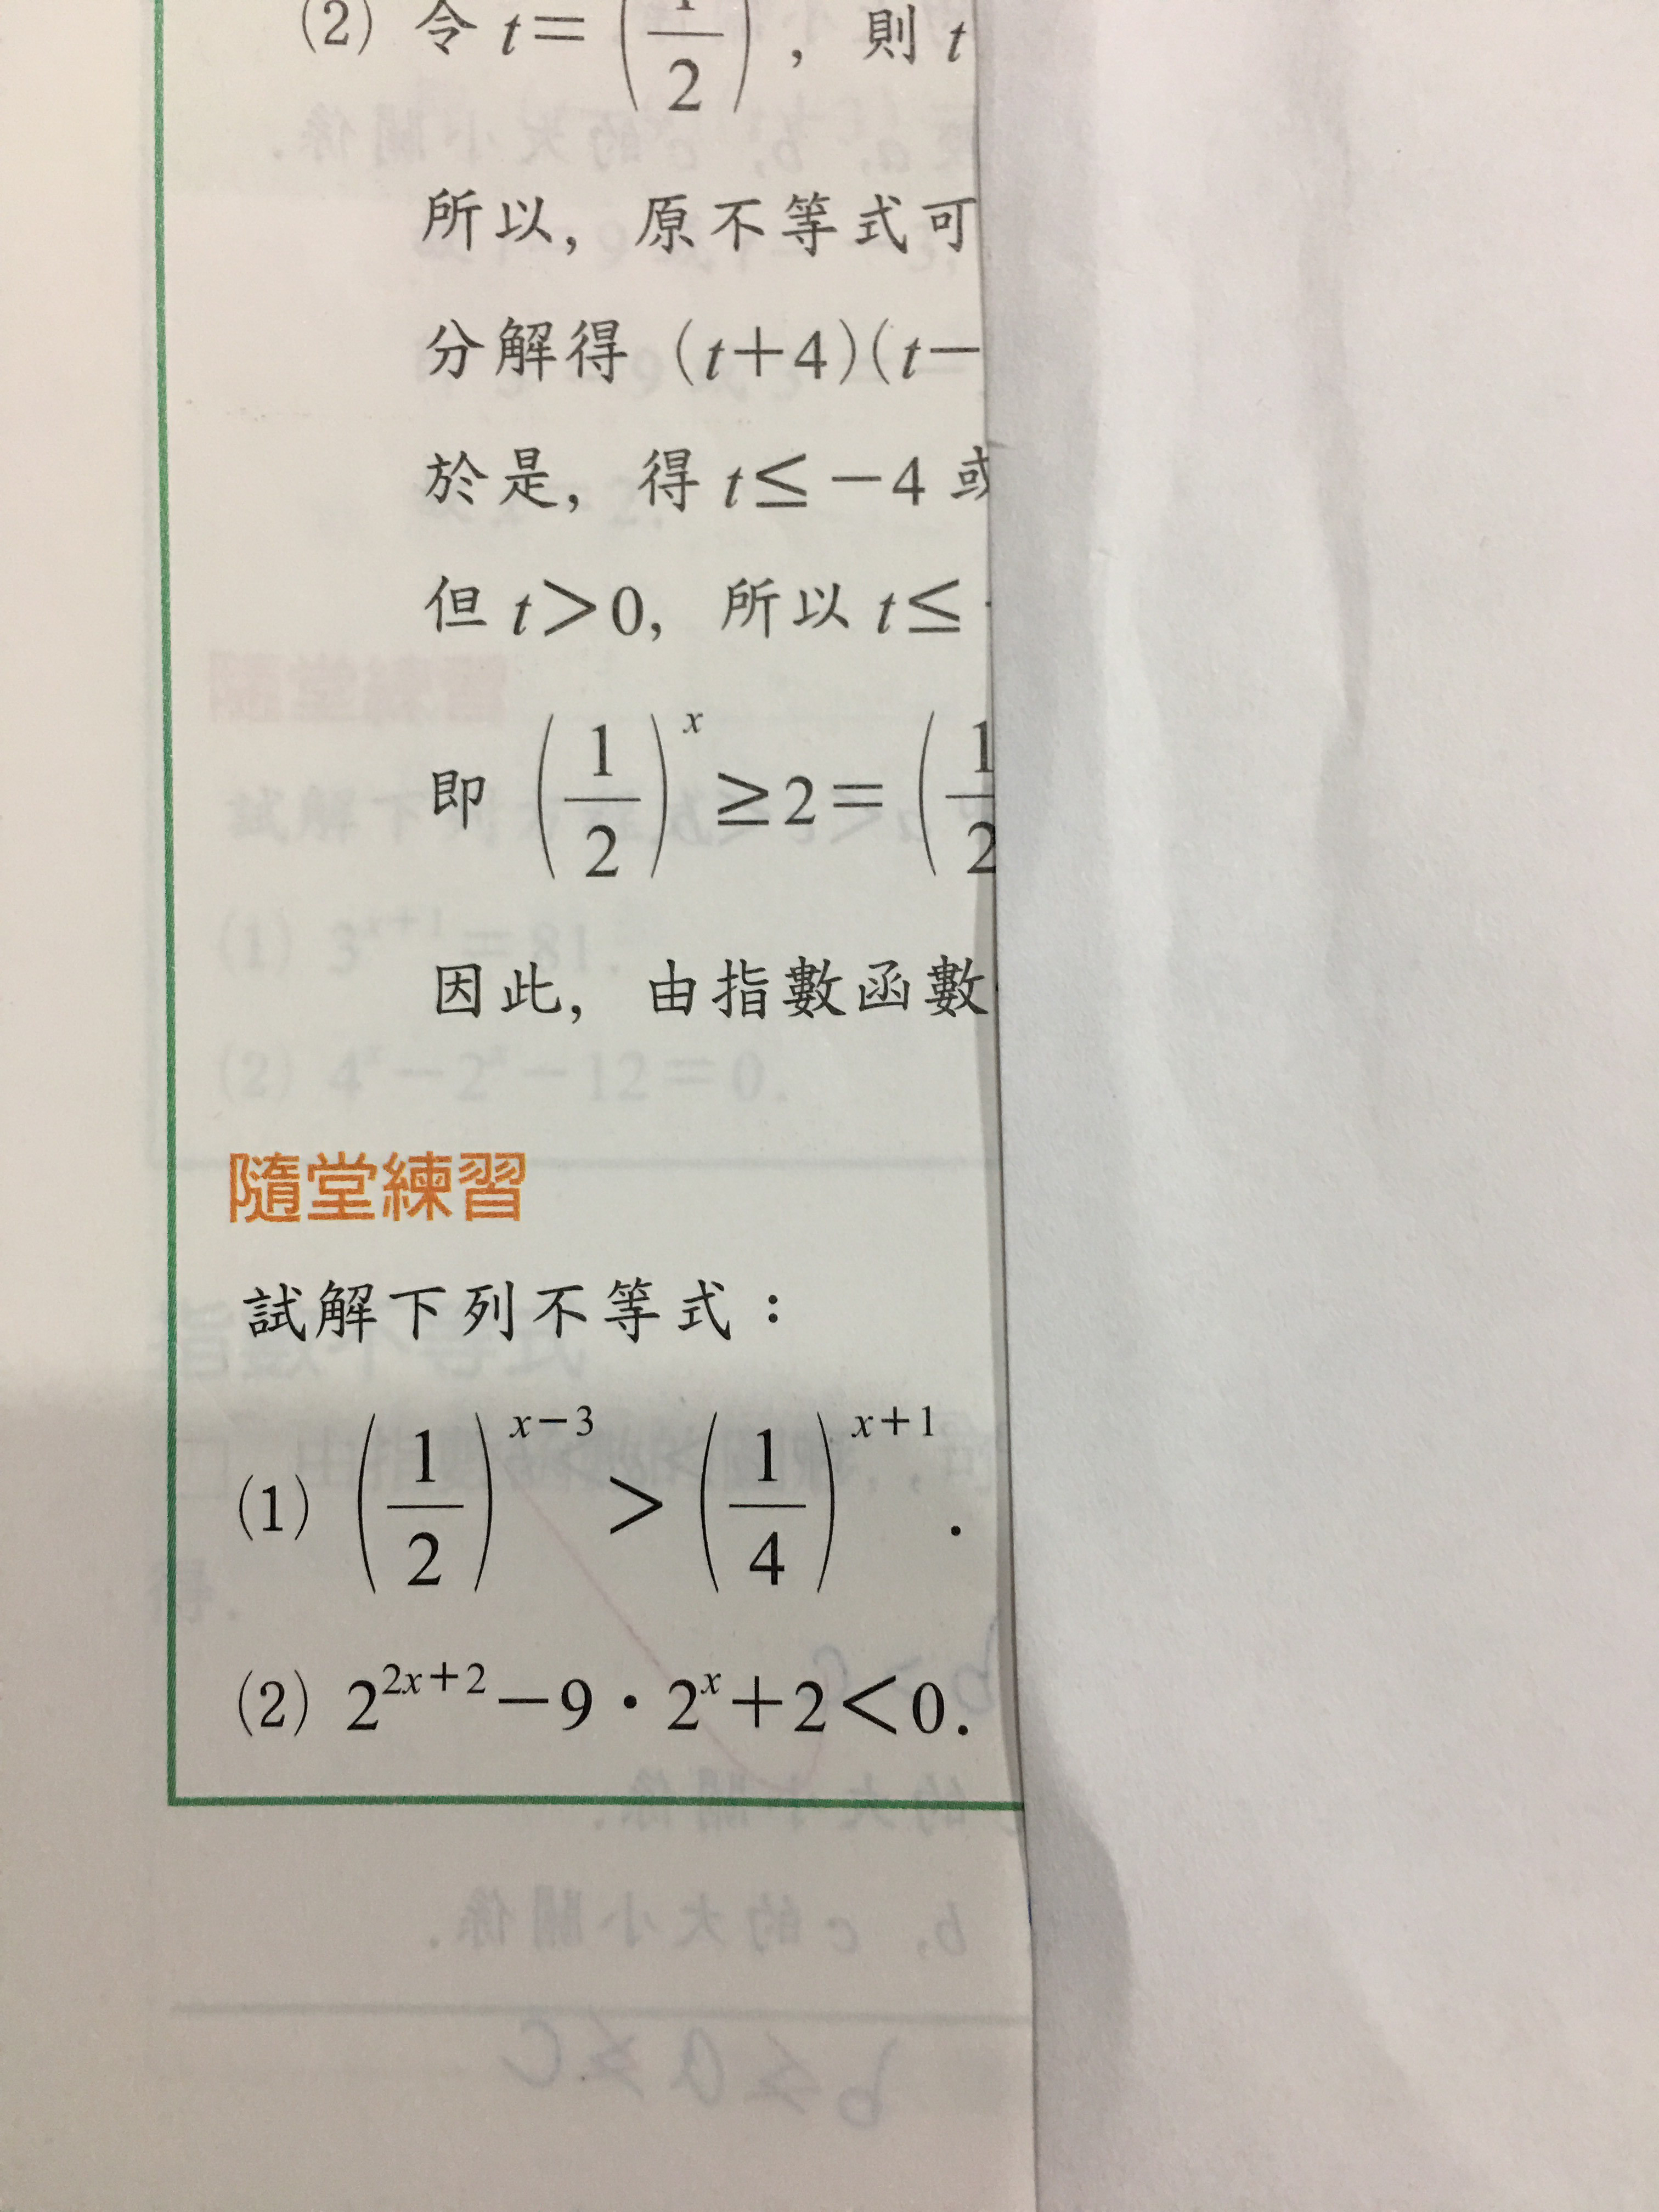 (2) 令 t=(1/2), 則 t
所以, 原不等式可
分解得 (t+4)(t−
於是, 得 t≤−4 或
但 t>0, 所以 t≤
即 (1/2)^x ≥2=(1/2
因此, 由指數函數
隨堂練習
試解下列不等式：
(1) (1/2)^{x−3} > (1/4)^{x+1}.
(2) 2^{2x+2}−9·2^x+2<0.